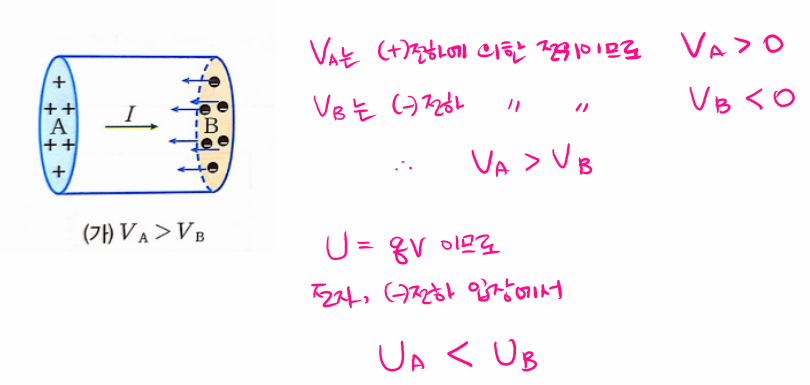 V_A는 (+)전하에 의한 전위이므로 V_A > 0
V_B는 (-)전하 〃 〃 V_B < 0
∴ V_A > V_B
+
+ +
A
+ +
+
I
B
(가) V_A > V_B
U = qV 이므로
전자, (-)전하 입장에서
U_A < U_B